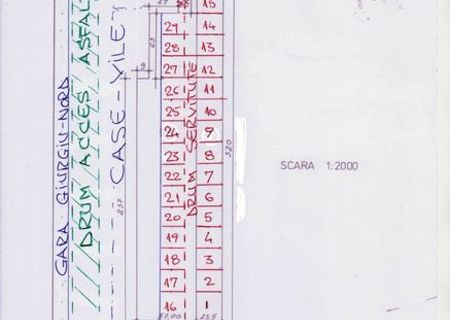 GARA GIURGIU-NORD
DRUM ACCES ASFAL
CASE-VILE
DRUM SERVITUTE
15
29 14
28 13
27 12
26 11
25 10
24 9
23 8
22 7
21 6
20 5
19 4
18 3
17 2
16 1
320
SCARA 1:2000